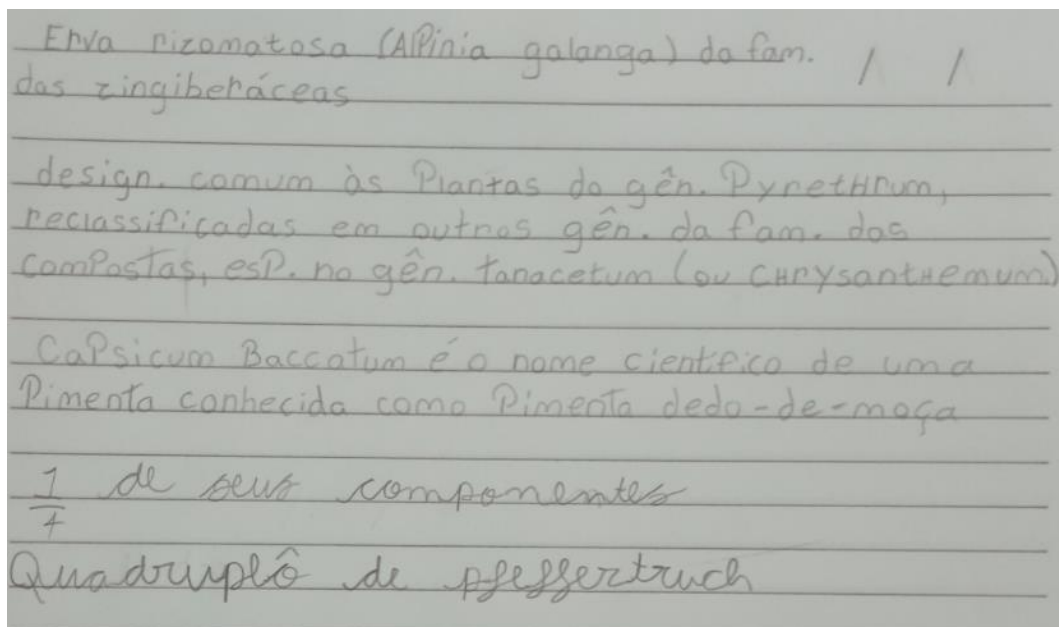 Erva rizomatosa (Alpinia galanga) da fam. / /
das zingiberáceas
design. comum às Plantas do gên. Pyrethrum,
reclassificadas em outros gên. da fam. das
compostas, esp. no gên. tanacetum (ou CHrysantHemum)
Capsicum Baccatum é o nome científico de uma
Pimenta conhecida como Pimenta dedo-de-moça
1/4 de seus componentes
Quadruplô de pfeffertruch